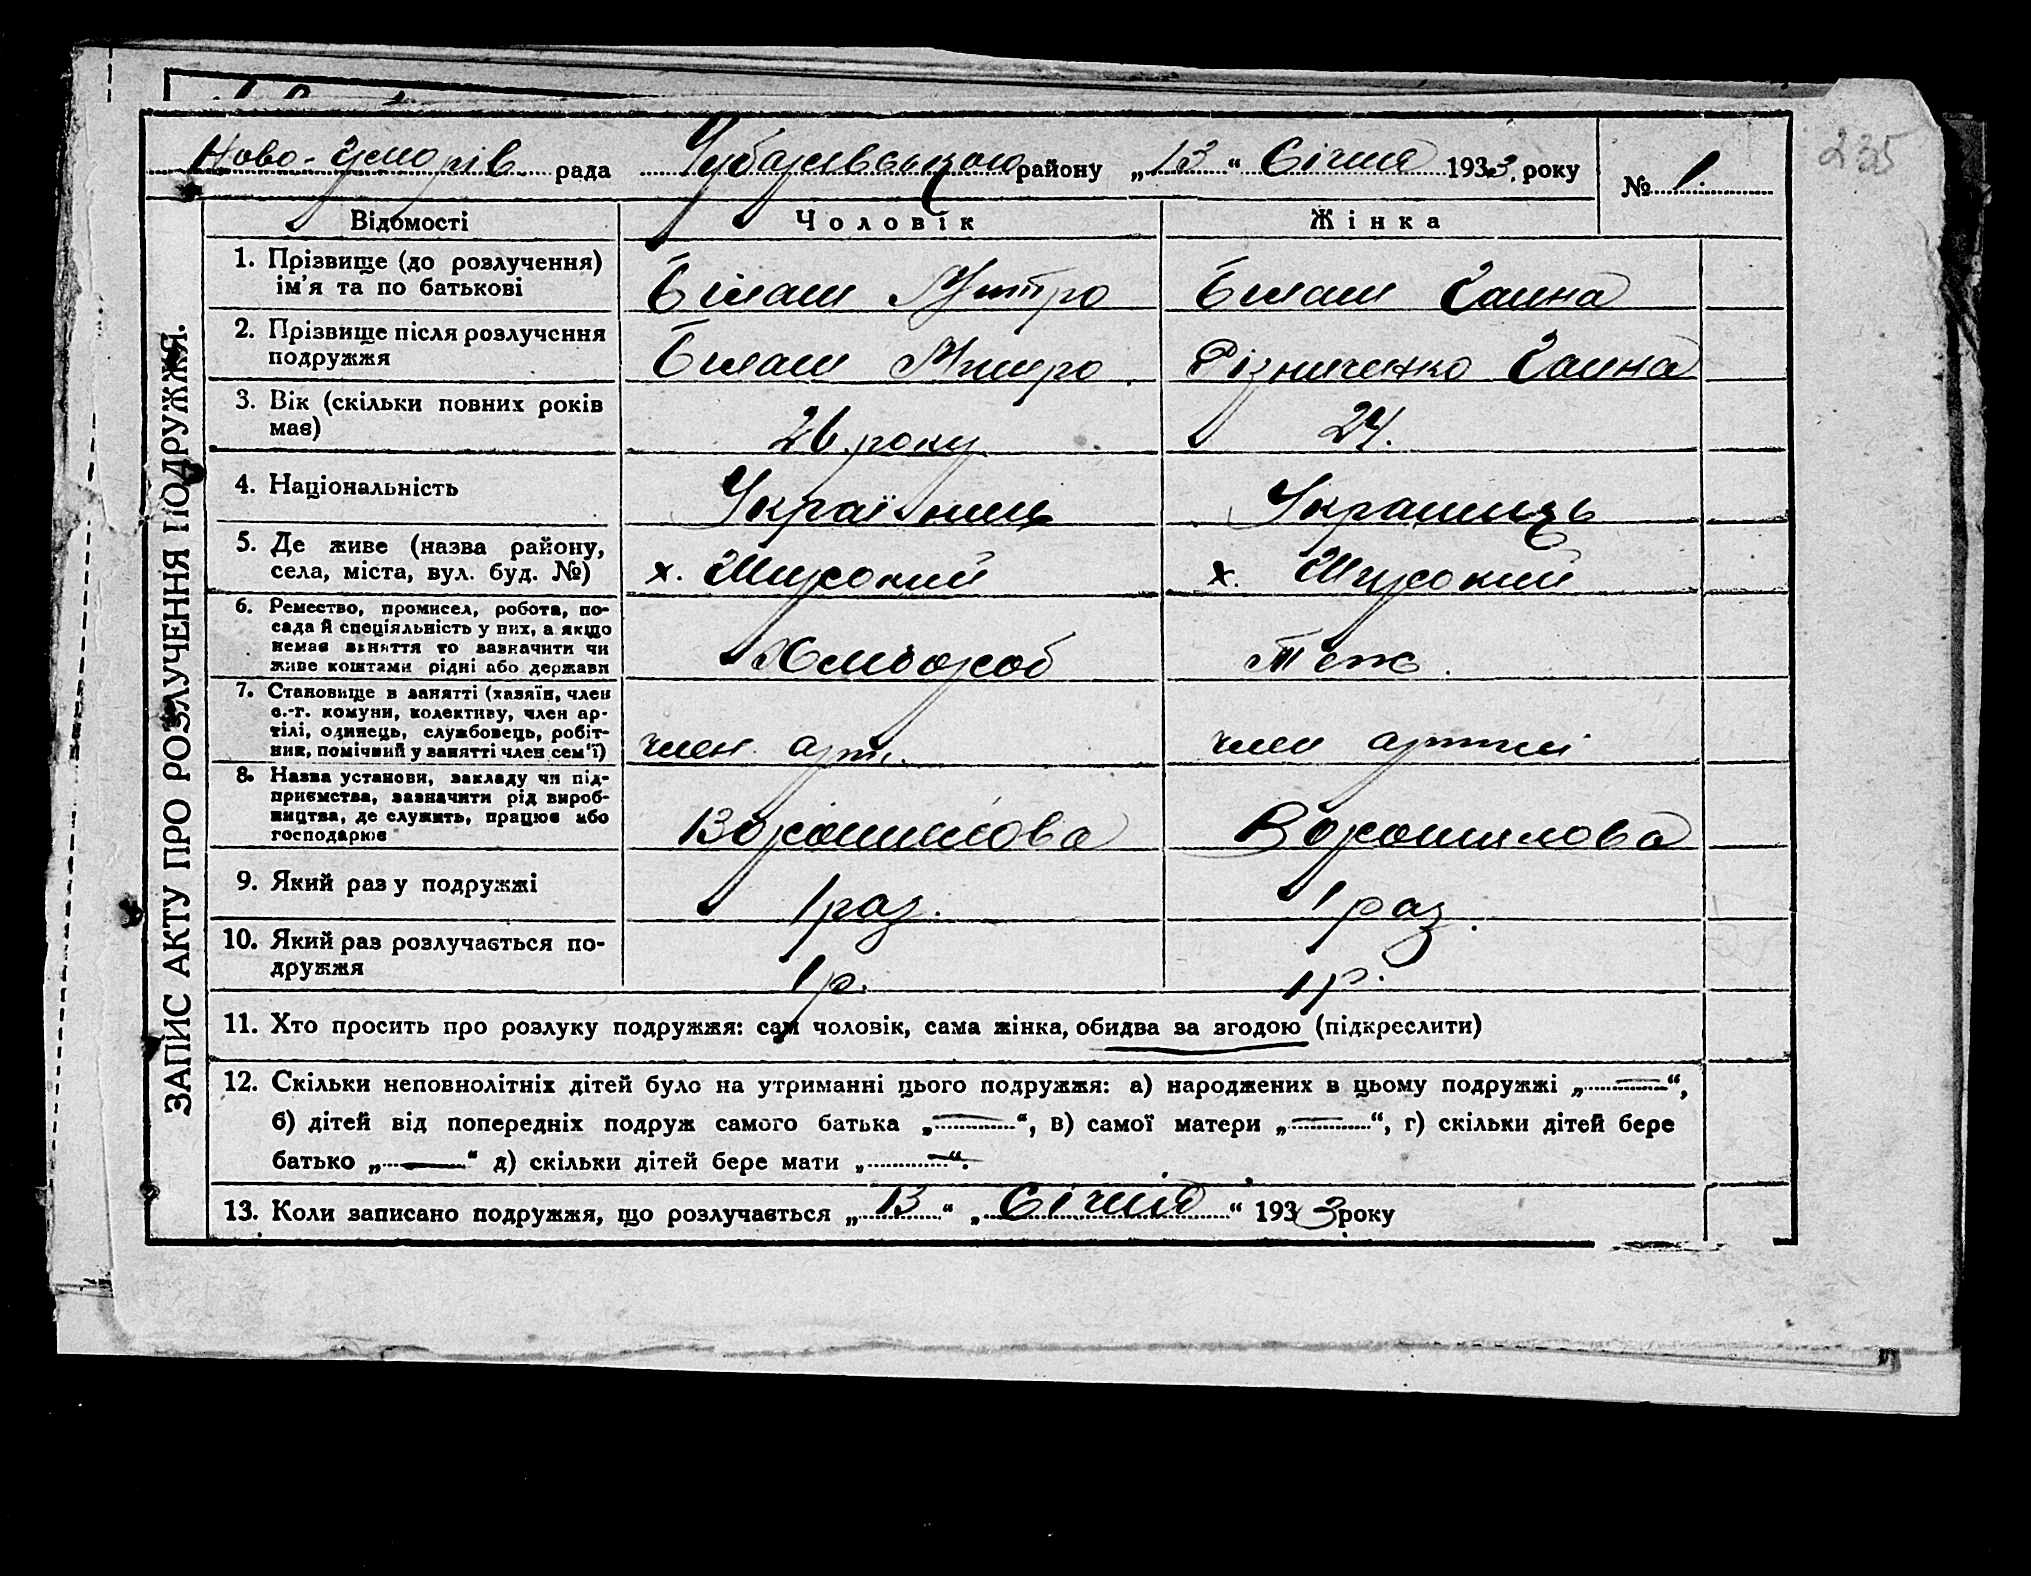 235
рада Чубарівського району „13“ Січня 1933 року № 1.
ЗАПИС АКТУ ПРО РОЗЛУЧЕННЯ ПОДРУЖЖЯ.
Відомості Чоловік Жінка
1. Прізвище (до розлучення)
ім'я та по батькові Білаш Митро Білаш Ганна
2. Прізвище після розлучення
подружжя Білаш Митро Різниченко Ганна
3. Вік (скільки повних років
має) 26 року 24.
4. Національність Українець Українець
5. Де живе (назва району,
села, міста, вул. буд. №) х. Широкий х. Широкий
6. Ремество, промисел, робота, по-
сада й спеціяльність у них, а якщо
немає заняття то зазначити чи
живе коштами рідні або держави Хлібороб Теж.
7. Становище в занятті (хазяїн, член
с.-г. комуни, колективу, член ар-
тілі, одинець, службовець, робіт-
ник, помічний у занятті член сем'ї) член арт. член артілі
8. Назва установи, закладу чи під-
приємства, зазначити рід вироб-
ництва, де служить, працює або
господарює Ворошилова Ворошилова
9. Який раз у подружжі 1 раз. 1 раз.
10. Який раз розлучається по-
дружжя 1 р. 1 р.
11. Хто просить про розлуку подружжя: сам чоловік, сама жінка, обидва за згодою (підкреслити)
12. Скільки неповнолітніх дітей було на утриманні цього подружжя: а) народжених в цьому подружжі „—“,
б) дітей від попередніх подруж самого батька „—“, в) самої матери „—“, г) скільки дітей бере
батько „—“ д) скільки дітей бере мати „—“.
13. Коли записано подружжя, що розлучається „13“ „Січня“ 1933 року